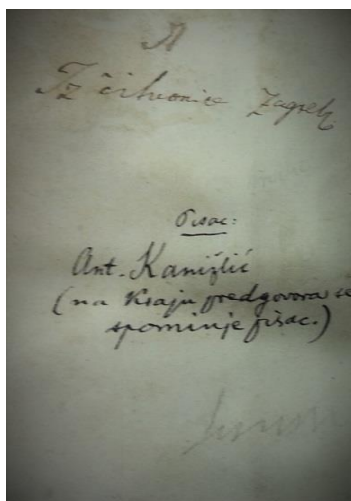 Iz čitaonice Zagreb
Pisac:
Ant. Kanižlić
(na kraju predgovora se
spominje pisac.)